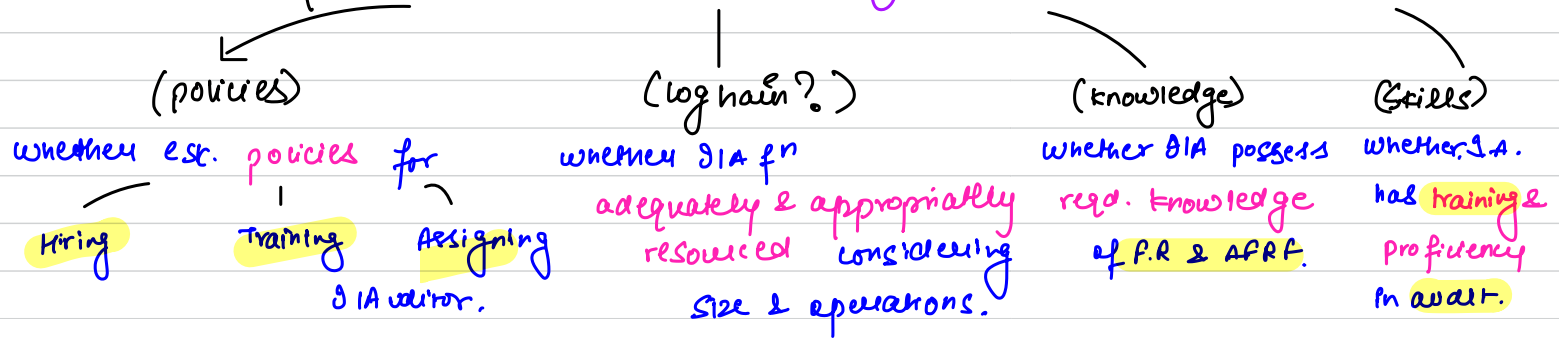 (policies)
whether est. policies for
Hiring Training Assigning
IAuditor.
(log hain?)
whether IA fn
adequately & appropriatly
resourced considering
size & operations.
(knowledge)
whether IA possess
reqd. knowledge
of F.R & AFRF.
(skills)
whether I.A.
has training &
proficiency
in audit.